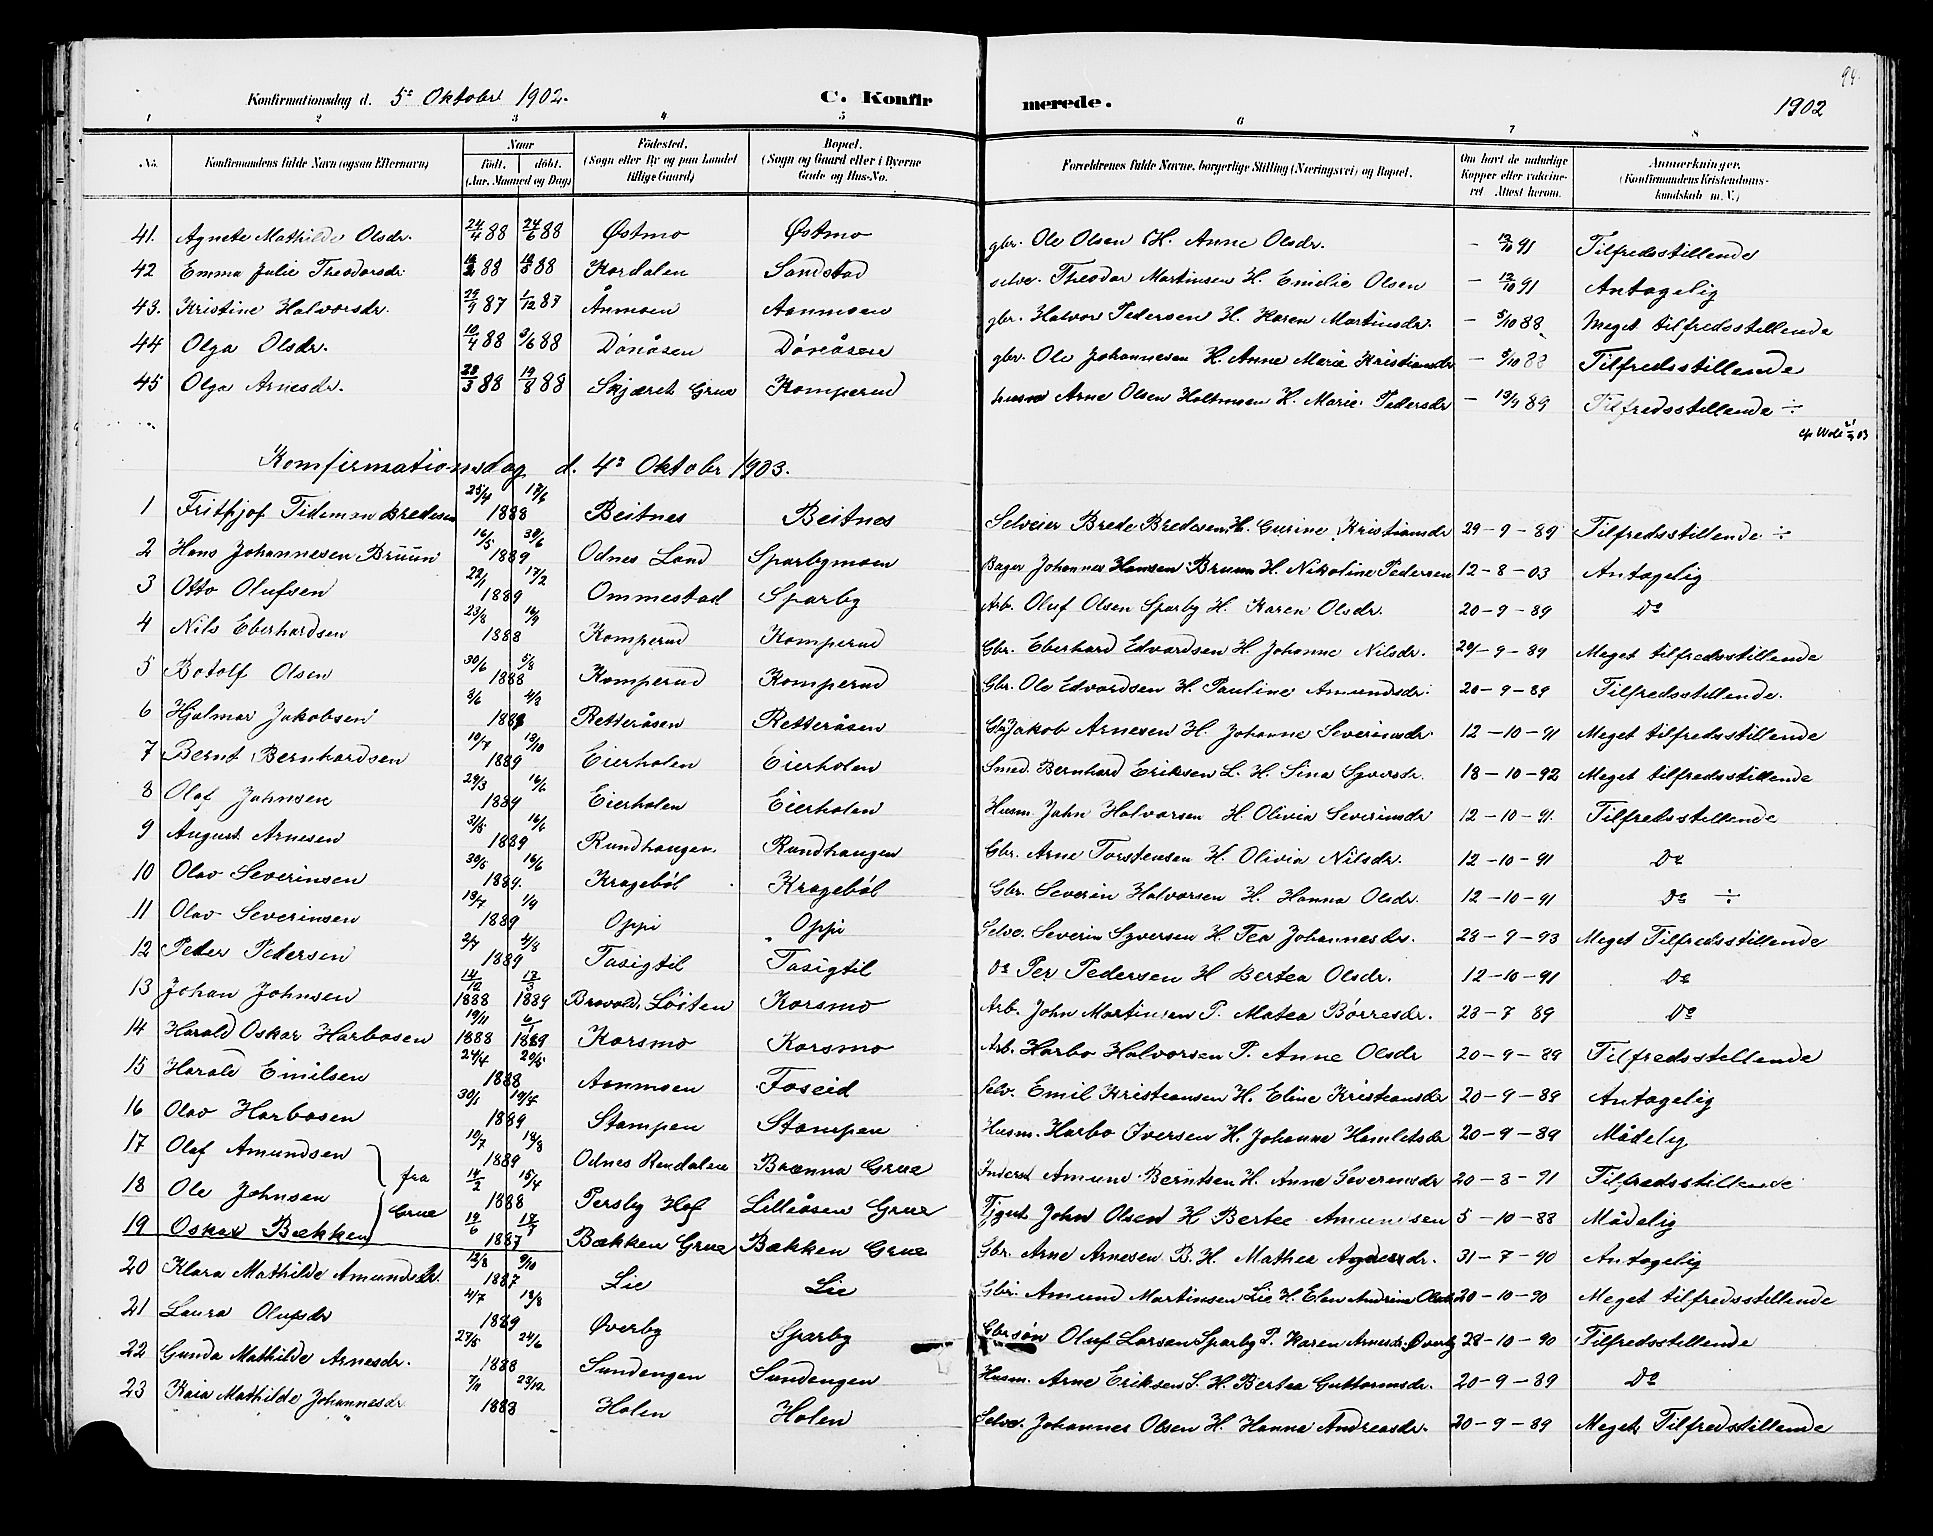 94.
Konfirmationsdag d. 5te Oktober 1902. C. Konfirmerede. 1902
1 2 3 4 5 6 7 8
No. Konfirmandens fulde Navn (ogsaa Efternavn) Naar Födt. döbt. (Aar, Maaned og Dag) Födested. (Sogn eller By og paa Landet tillige Gaard) Bopæl. (Sogn og Gaard eller i Byerne Gade og Hus-No. Forældrenes fulde Navne, borgerlige Stilling (Næringsvei) og Bopæl. Om havt de naturlige Kopper eller vakcineret. Attest herom. Anmærkninger. (Konfirmandens Kristendomskundskab m. V.)
41. Agnete Mathilde Olsdr. 24/4 88 24/6 88 Østmo Østmo gbr. Ole Olsen H. Anne Olsdr. - 12/10 91 Tilfredsstillende
42 Emma Julie Theodorsdr. 88 88 Kordalen Sandstad selve. Theodor Martinsen H. Emilie Olsen - 12/10 91 Antagelig
43. Kristine Halvorsdr. 29/9 87 1/12 87 Ånmoen Aanmoen gbr. Halvor Pedersen H. Karen Martinsdr. - 5/10 88 Meget tilfredsstillende
44 Olga Olsdr. 10/4 88 3/6 88 Döråsen Döråsen gbr. Ole Johannesen H. Anne Marie Kristiansdr - 5/10 88 Tilfredsstillende
45 Olga Arnesdr. 23/3 88 19/8 88 Skjæret Grue Komperud husm Arne Olsen Holtmoen H. Marie Pedersdr - 19/9 89 Tilfredsstillende ÷
Konfirmationsdag d. 4de Oktober 1903.
1 Frithjof Tideman Bredesen 25/4 17/6 1888 Beitnes Beitnes Selveier Brede Bredesen H. Gurine Kristiansdr 29-9-89 Tilfredsstillende ÷
2 Hans Johannesen Bruun 16/5 30/6 1889 Odnes Land Sparbymoen Bager Johannes Hansen Bruun H. Nikoline Pedersen 12-8-03 Antagelig
3 Otto Olufsen 22/1 17/2 1889 Ommestad Sparby Arb. Oluf Olsen Sparby H. Karen Olsdr. 20-9-89 Do
4 Nils Eberhardsen 23/8 16/9 1888 Komperud Komperud Gbr. Eberhard Edvardsen H. Johanne Nilsdr. 20-9-89 Meget tilfredsstillende
5 Botolf Olsen 30/6 5/8 1888 Komperud Komperud Gbr. Ole Edvardsen H. Pauline Amundsdr. 20-9-89 Tilfredsstillende.
6 Hjalmar Jakobsen 3/6 4/8 Retteråsen Retteråsen Gbr Jakob Arnesen H. Johanne Severinsdr 12-10-91 Meget tilfredsstillende
7 Bernt Bernhardsen 10/7 13/10 1889 Eierholen Eierholen Smed. Bernhard Eriksen L. H. Sina Syversdr. 18-10-92 Meget tilfredsstillende
8 Olaf Johnsen 29/3 16/6 1889 Eierholen Eierholen Husm. John Halvorsen H. Olivia Severinsdr 12-10-91. Tilfredsstillende
9 August Arnesen 31/5 16/6 1889 Rundhaugen. Rundhaugen Gbr. Arne Torstensen H. Olivia Nilsdr. 12-10-91 Do
10 Olav Severinsen 30/5 16/6 1889. Kragebøl Kragebøl Gbr. Severin Halvorsen H. Hanna Olsdr. 12-10-91 Do ÷
11 Olav Severinsen 13/7 1/9 1889 Oppi Oppi Selve. Severin Syversen H. Tea Johannesdr. 28-9-93 Meget Tilfredsstillende
12 Peder Pedersen 2/7 4/8 1889 Tasigtil Tasigtil Do Per Pedersen H Bertea Olsdr. 12-10-91 Do
13 Johan Johnsen 14/12 1888 17/3 1889 Bravold. Löiten Korsmo Arb. John Martinsen P. Matea Börresdr. 23-7 89 Do
14 Harald Oskar Harbosen 19/11 1888 6/1 1889 Korsmo Korsmo Arb. Harbo Halvorsen P. Anne Olsdr 20-9-89 Tilfredsstillende
15 Harald Emilsen 24/4 20/5 1888 Aanmoen Foseid Selv. Emil Kristiansen H. Eline Kristiansdr 20-9-89 Antagelig
16 Olav Harbosen 30/1 1889 Stampen Stampen Husm. Harbo Iversen H. Johanne Hamletsdr 20-9-89 Mådelig
17 Olaf Amundsen 10/7 18/8 1889 Odnes Rendalen Brænna Grue Inderst Amund Berntsen H. Anne Severinsdr 20-8-91 Tilfredsstillende
18 Ole Johnsen fra Grue 14/2 15/4 1888 Persby Hof Lilleåsen Grue John Olsen H Bertee Amundsen 5-10-88 Mådelig
19 Oskar Bækken 19/6 17/7 1887 Bækken Grue Bækken Grue Gbr. Arne Arnesen B. H. Mathea 31-7-90 Antagelig
20 Klara Mathilde Amundsdr. 12/8 9/10 1887 Lie Lie Gbr. Amund Martinsen Lie H. Elen Andrine Olsdr 20-10-90 Meget tilfredsstillende
21 Laura Olufsdr 4/7 18/8 1889 Øverby Sparby Gbrsøn Oluf Larsen Sparby P. Karen Arnesdr. Øverby 28-10-90 Tilfredsstillende
22 Gunda Mathilde Arnesdr. 27/5 24/6 1888 Sundengen Sundengen Husm. Arne Eriksen S. H. Bertea Guttormsdr. 20-9-89 Do
23 Kaia Mathilde Johannesdr 7/11 23/12 1888 Holen Holen Selve. Johannes Olsen H. Hanna Andreasdr. 20-9-89 Meget Tilfredsstillende